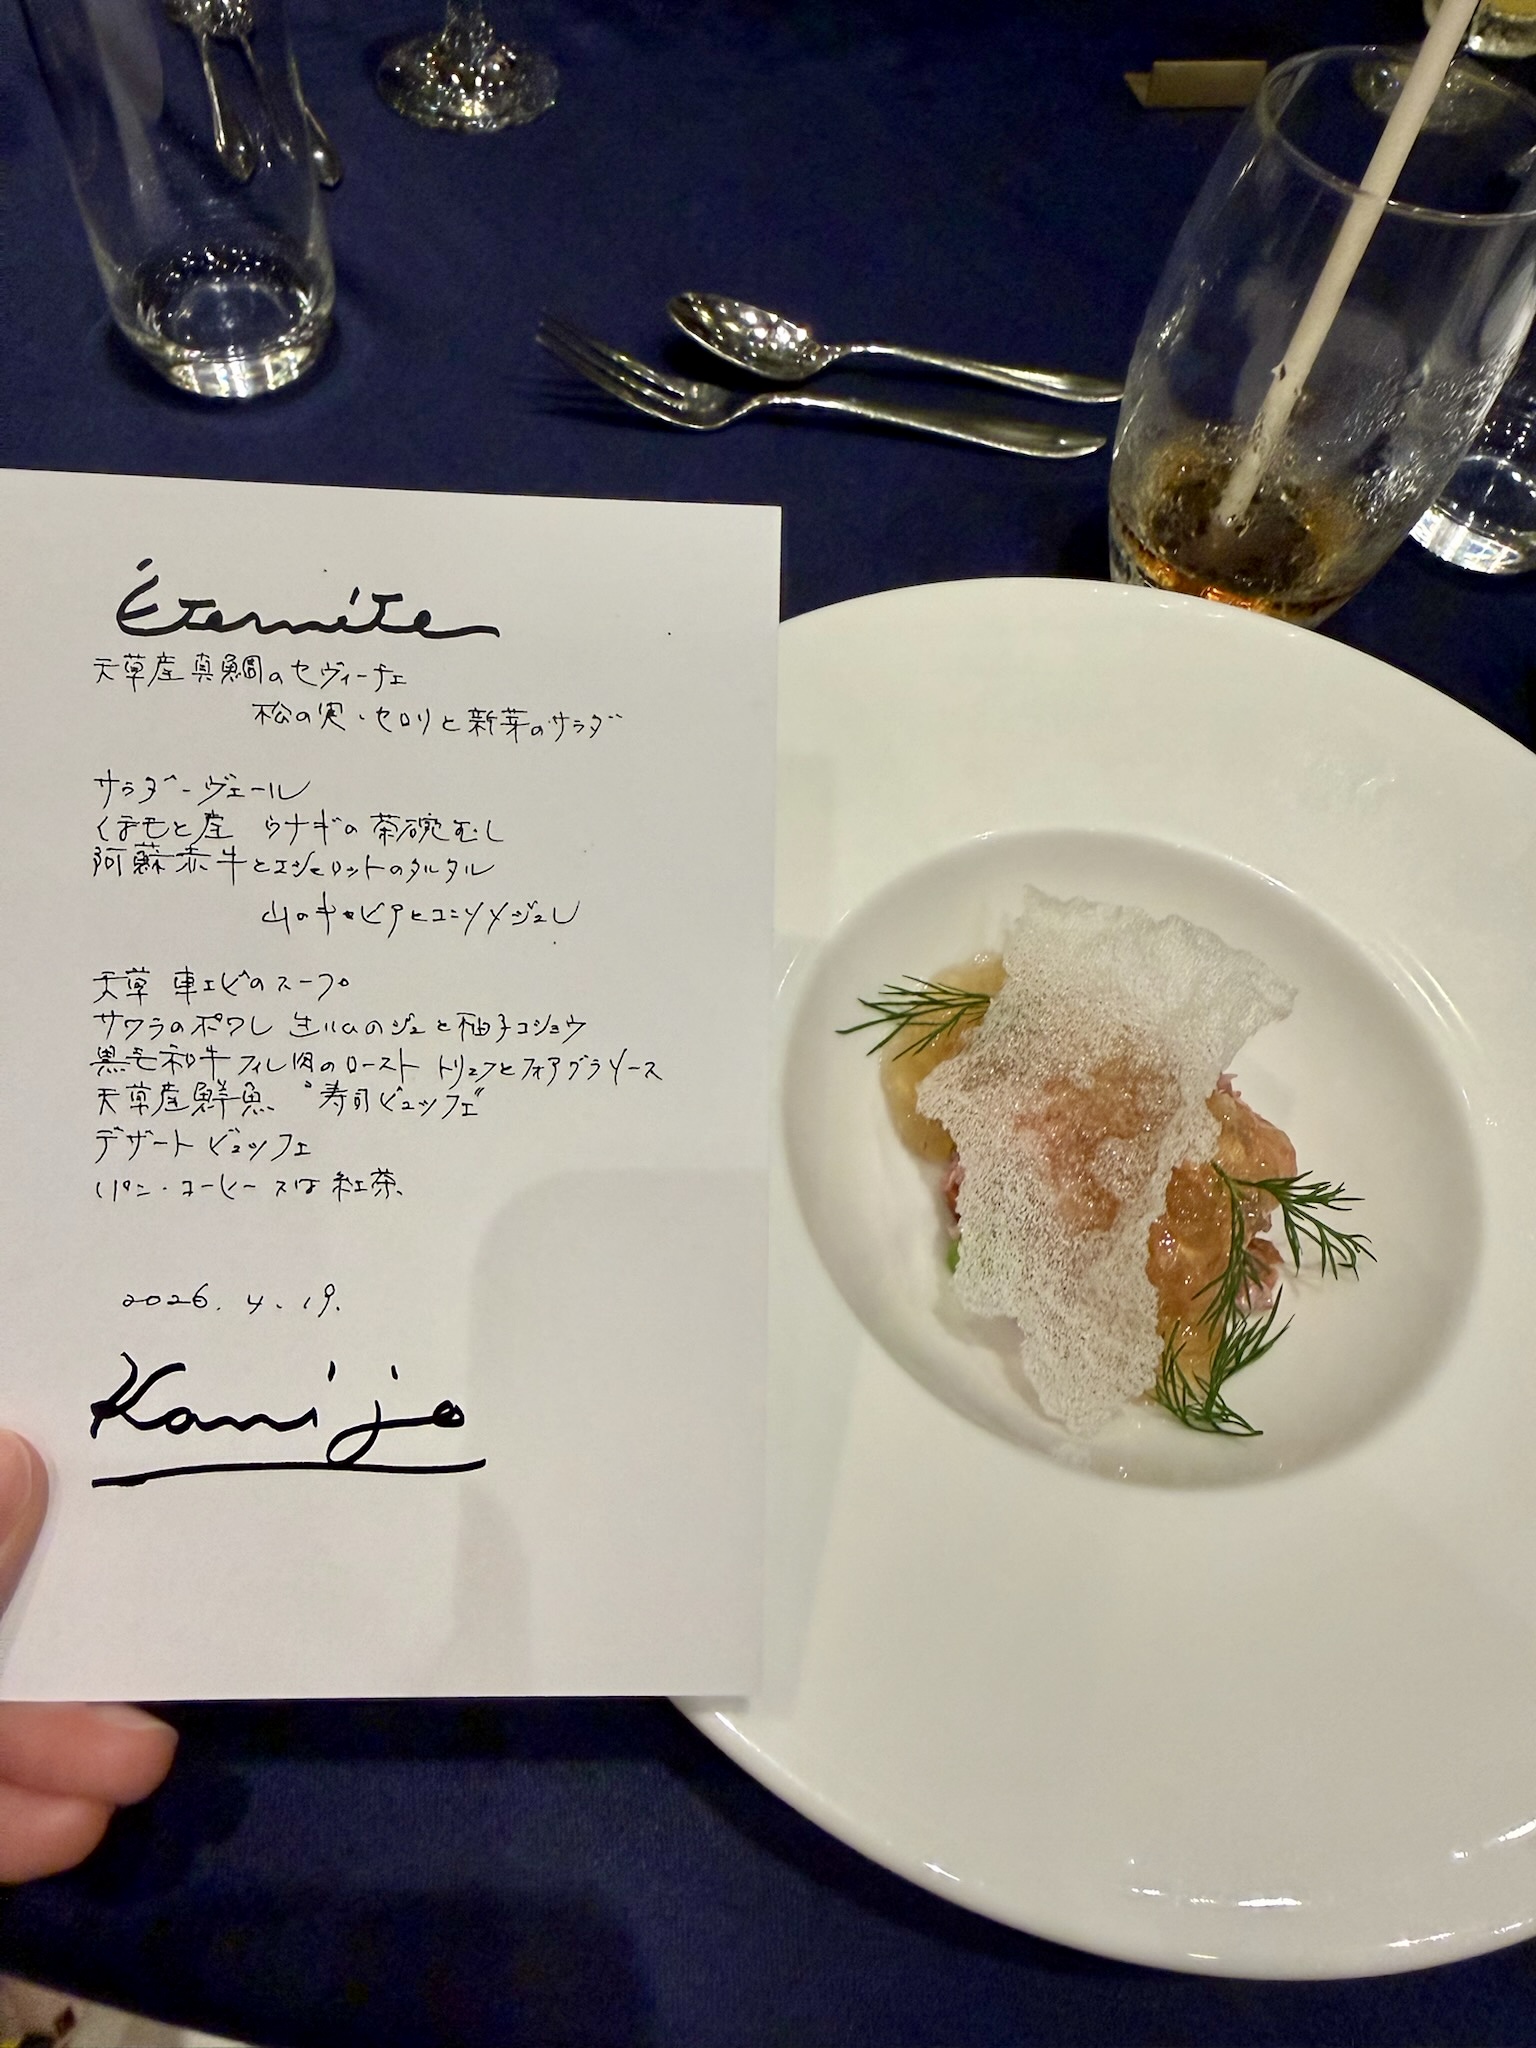 Éternité
天草産真鯛のセヴィーチェ
松の実・セロリと新芽のサラダ
サラダ・ヴェール
くまもと産 ウナギの茶碗むし
阿蘇赤牛とエシャロットのタルタル
山のキャビアとコンソメジュレ
天草 車エビのスープ
サワラのポワレ 生ハムのジュと柚子コショウ
黒毛和牛フィレ肉のロースト トリュフとフォアグラソース
天草産鮮魚 "寿司ビュッフェ"
デザートビュッフェ
パン・コーヒー又は紅茶
2026.4.19.
Kamijo